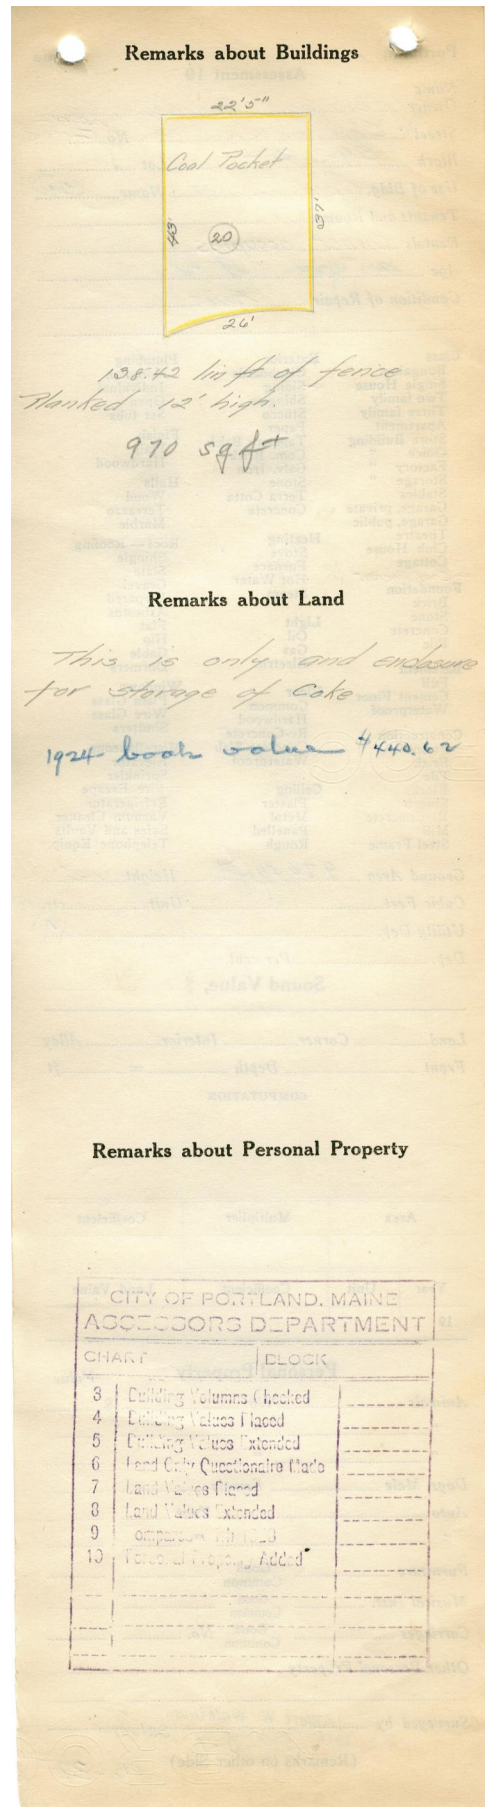 Remarks about Buildings
22'5"
Coal Pocket
43'
20
37'
26'
138.42 lin ft of fence
Planked 12' high.
970 sq ft
Remarks about Land
This is only and enclosure
for storage of Coke
1924 book value $440.62
Remarks about Personal Property
CITY OF PORTLAND, MAINE
ASSESSORS DEPARTMENT
CHART BLOCK
3 Building Volumns Checked
4 Building Values Placed
5 Building Values Extended
6 Land Only Questionaire Made
7 Land Values Placed
8 Land Values Extended
9
10 Personal Property Added